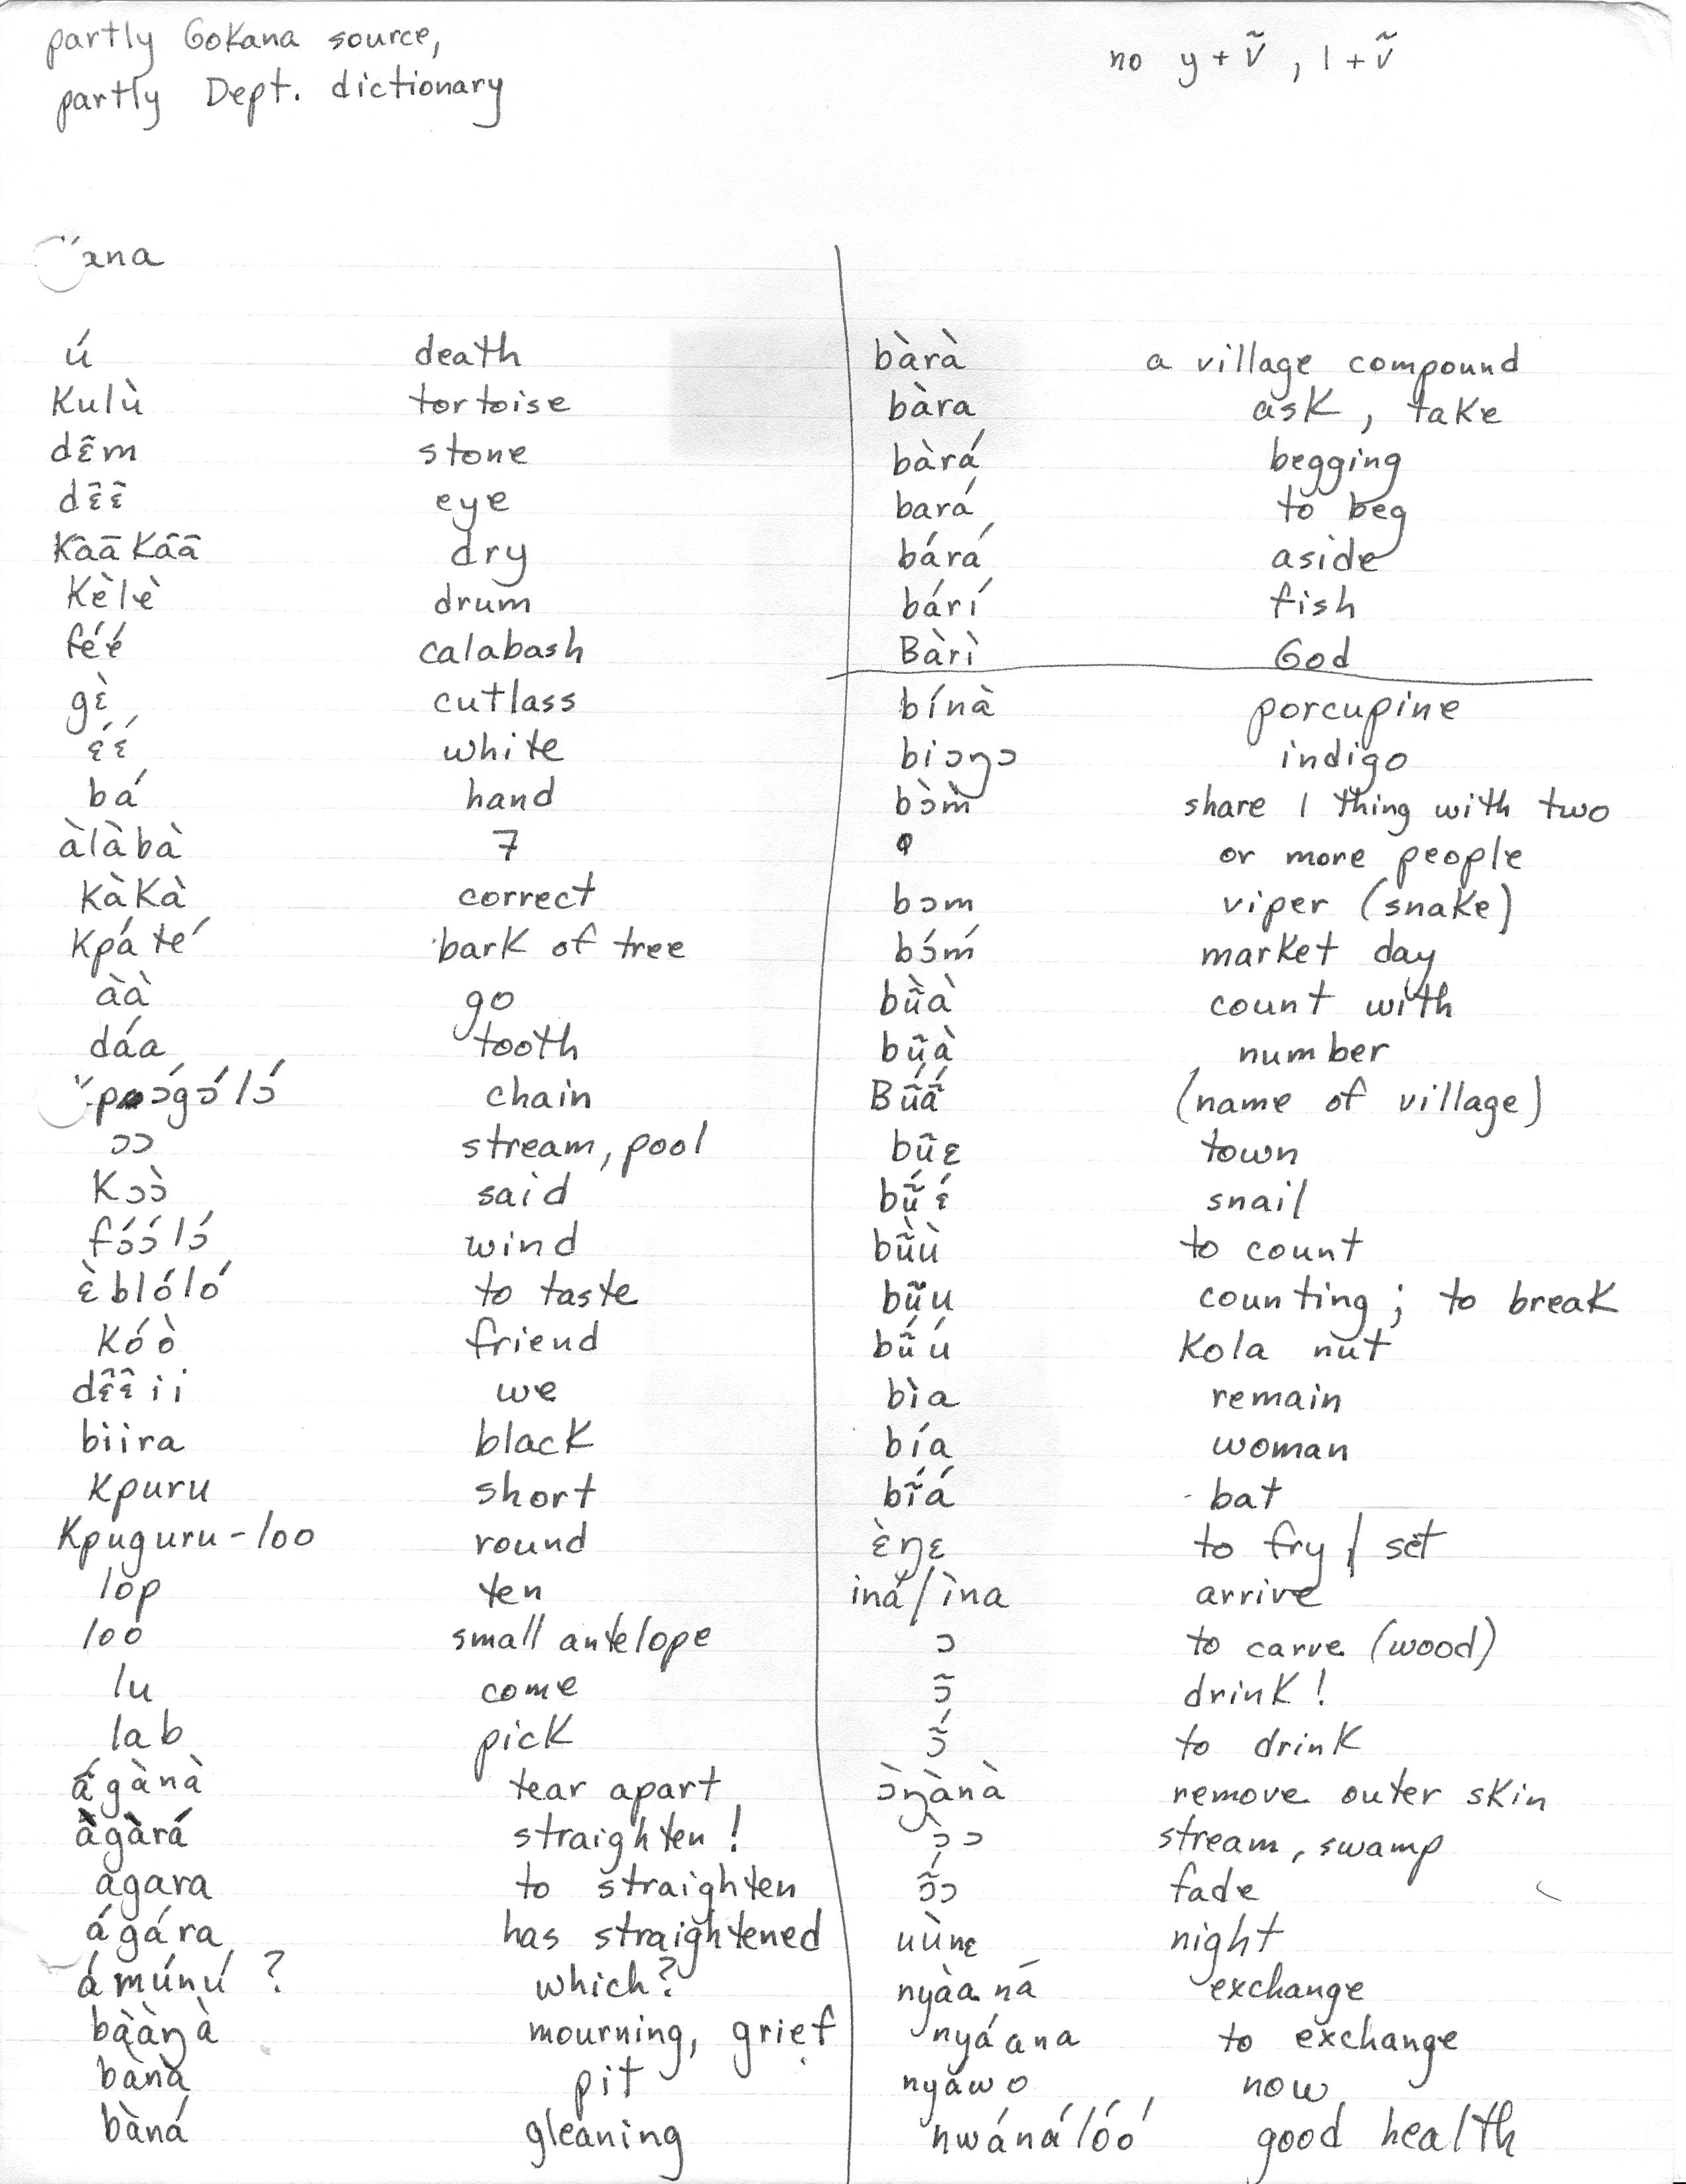 partly Gokana source,
partly Dept. dictionary
no y + ṽ , l + ṽ
ana
ú death
kulù tortoise
dɛ̃m stone
dɛ̂ɛ̂ eye
dry
kèlè drum
féé calabash
gɛ̀ cutlass
ɛ́ɛ́ white
bá hand
àlàbà 7
kàkà correct
kpá té bark of tree
àà go
dáa tooth
chain
ɔɔ stream, pool
kɔɔ̀ said
fɔ́ɔ́lɔ́ wind
ɛ̀blóló to taste
kóò friend
dɛ̂ɛ̂ii we
biira black
kpuru short
kpuguru-loo round
lop ten
loo small antelope
lu come
lab pick
ágànà tear apart
àgàrá straighten!
agara to straighten
ágára has straightened
ámúnú? which?
bààŋà mourning, grief
bànà pit
bàná gleaning
bàrà a village compound
bàra ask, take
bàrá begging
bará to beg
bárá aside
bárí fish
Bàrì God
bínà porcupine
biɔŋɔ indigo
bɔ̀m̀ share 1 thing with two
or more people
bɔm viper (snake)
bɔ́ḿ market day
bũ̀à count with
bũà number
Bṹã́ (name of village)
bũɛ town
bṹɛ́ snail
bũ̀ù to count
bũu counting; to break
bṹú kola nut
bìa remain
bía woman
bĩ́á bat
ɛ̀ŋɛ to fry / set
iná/ìna arrive
ɔ to carve (wood)
ɔ̃ drink!
ɔ̃́ to drink
ɔ̀ŋànà remove outer skin
ɔ̀ɔ stream, swamp
ɔ̃́ɔ fade
uùnɛ night
nyàaná exchange
nyáana to exchange
nyáwo now
nwánálóó good health